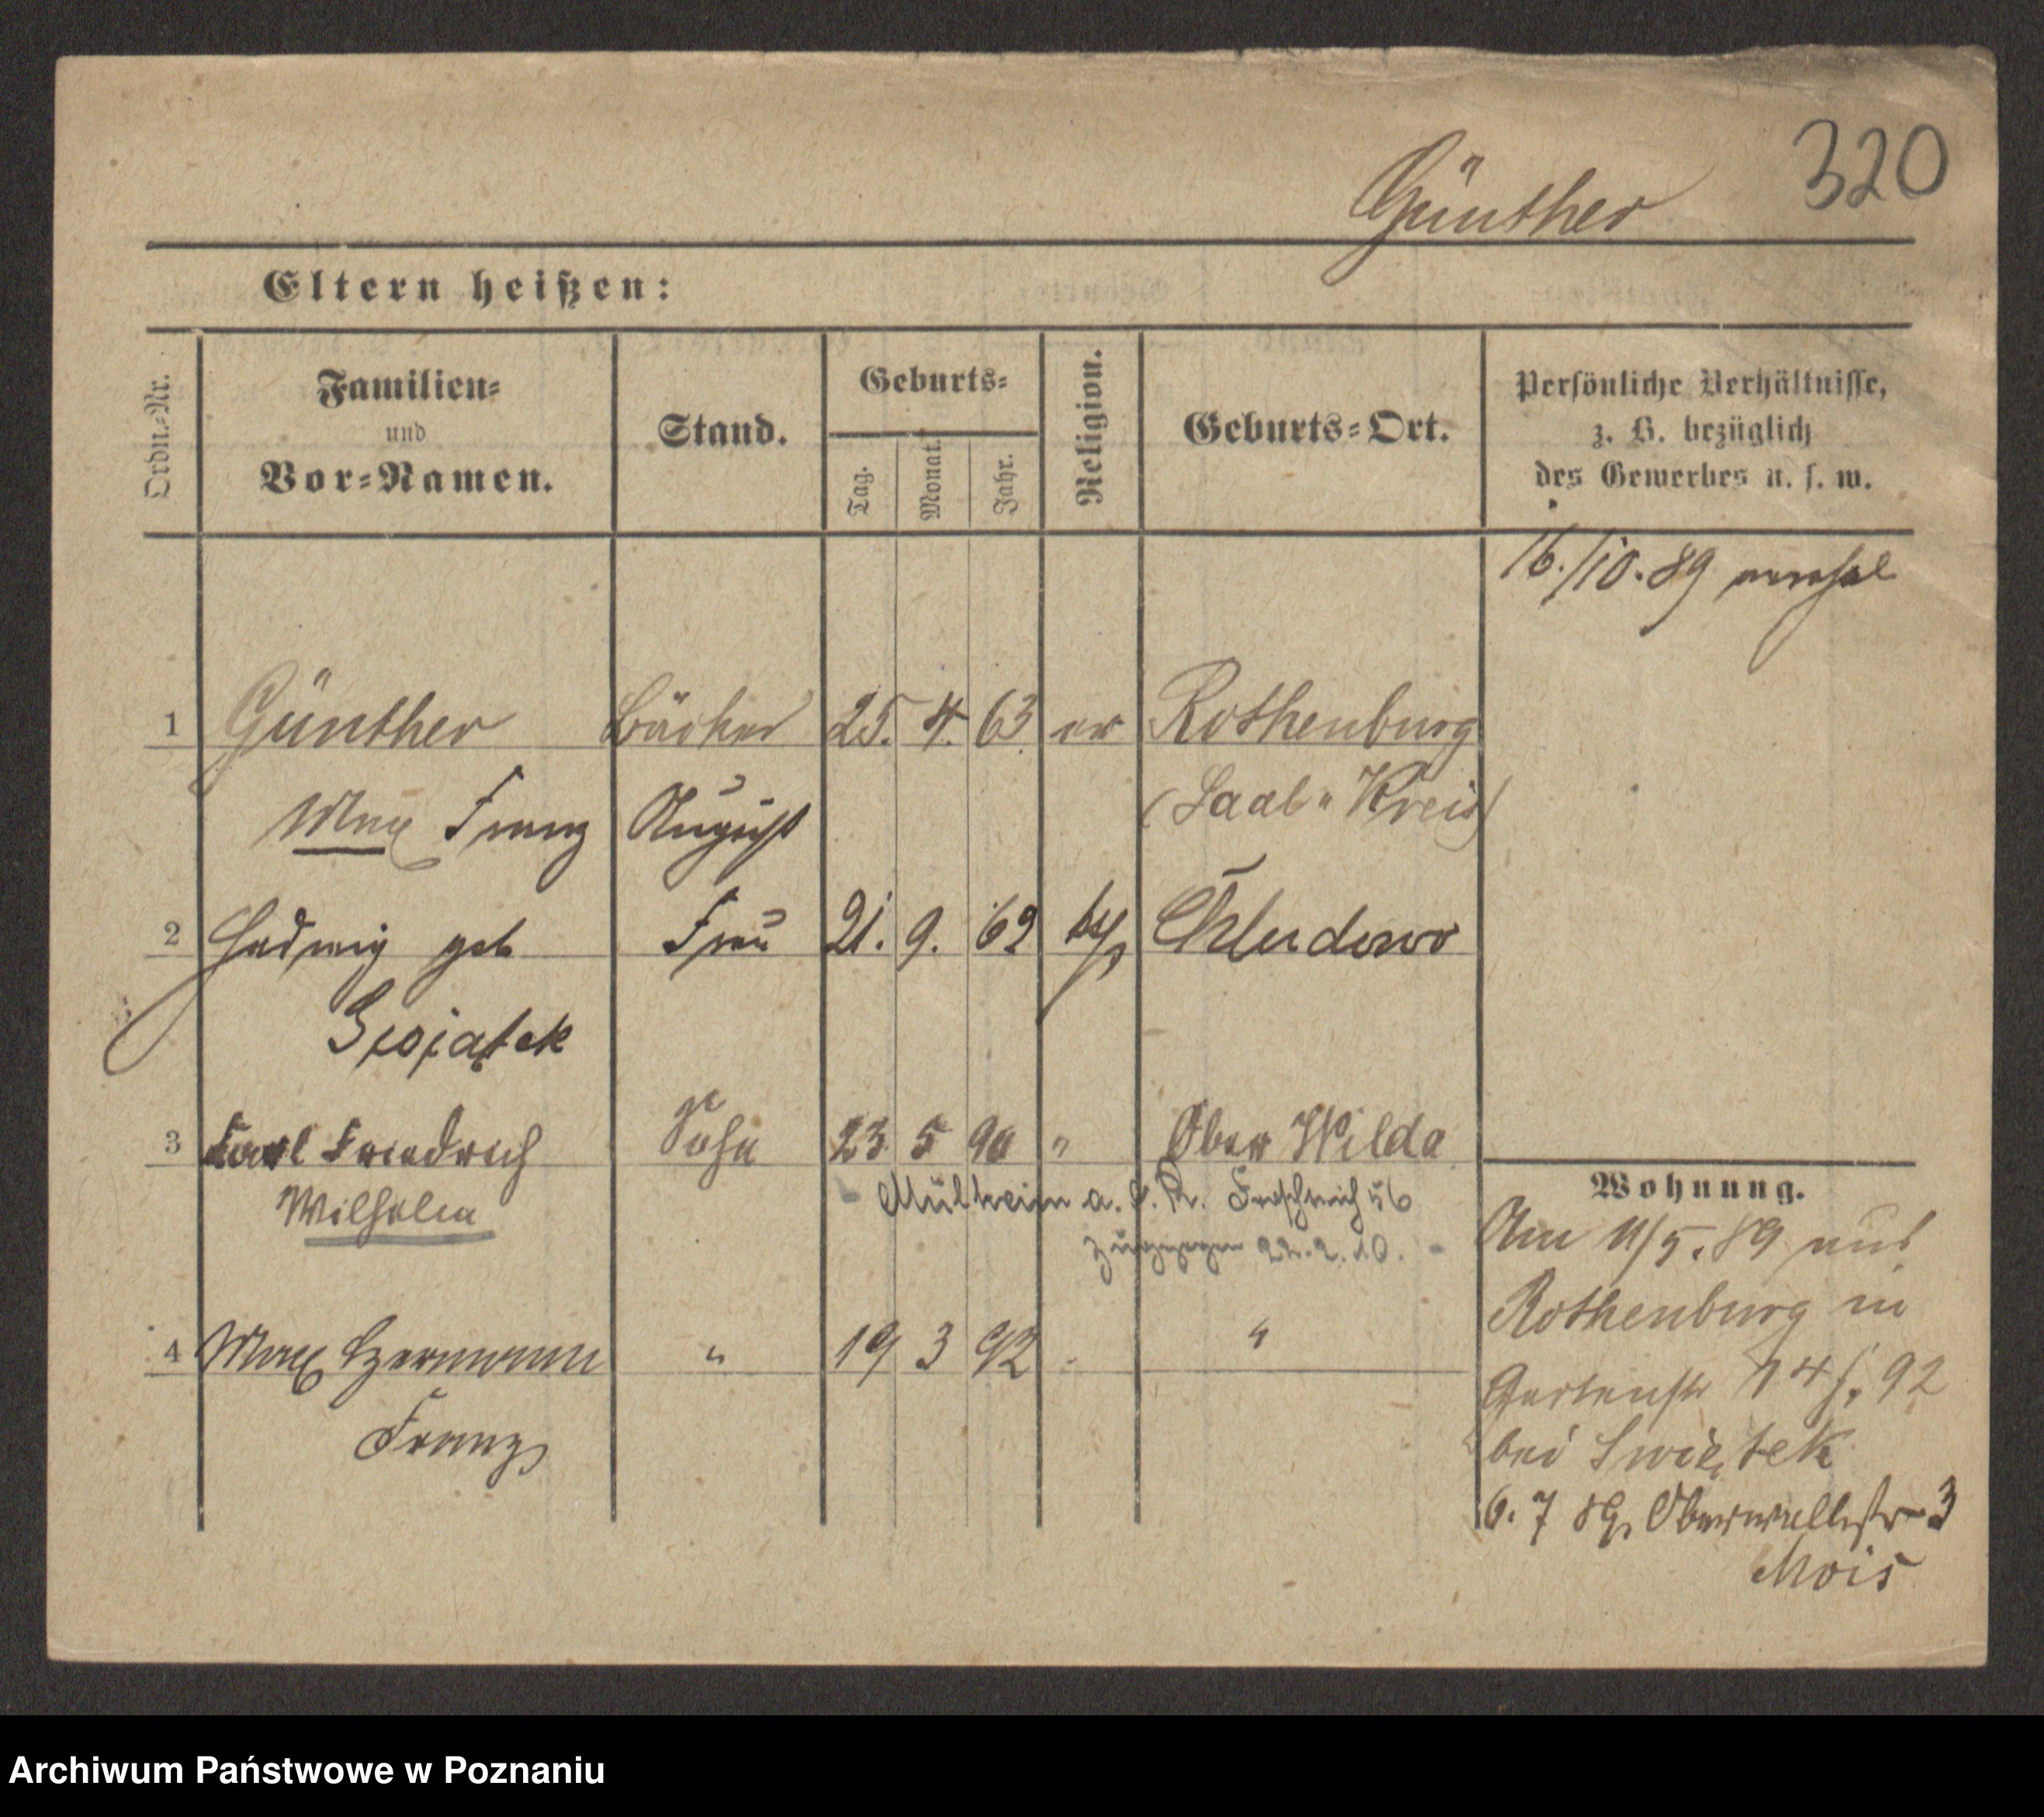 320
Günther
Eltern heißen:
Ordn.-Nr.
Familien-
und
Vor-Namen.
Stand.
Geburts-
Tag.
Monat.
Jahr.
Religion.
Geburts-Ort.
Persönliche Verhältnisse,
z. B. bezüglich
des Gewerbes u. s. w.
16./10.89
1 Günther Bäcker 25. 4. 63 ev Rothenburg
Max Franz August (Saal-Kreis)
2 Hedwig geb Frau 21. 9. 69 Chludowo
3 Karl Friedrich Sohn 23 5 90 " Ober Wilda
Wilhelm
Mülheim a. d. R. 56
zugezogen 22.2.10.
4 Max Hermann " 19 3 92 "
Franz
Wohnung.
Am 11/5.89 aus
Rothenburg in
Gartenstr 14 92
bei Swiętek
6. 7 89. Oberwallstr 3
Archiwum Państwowe w Poznaniu